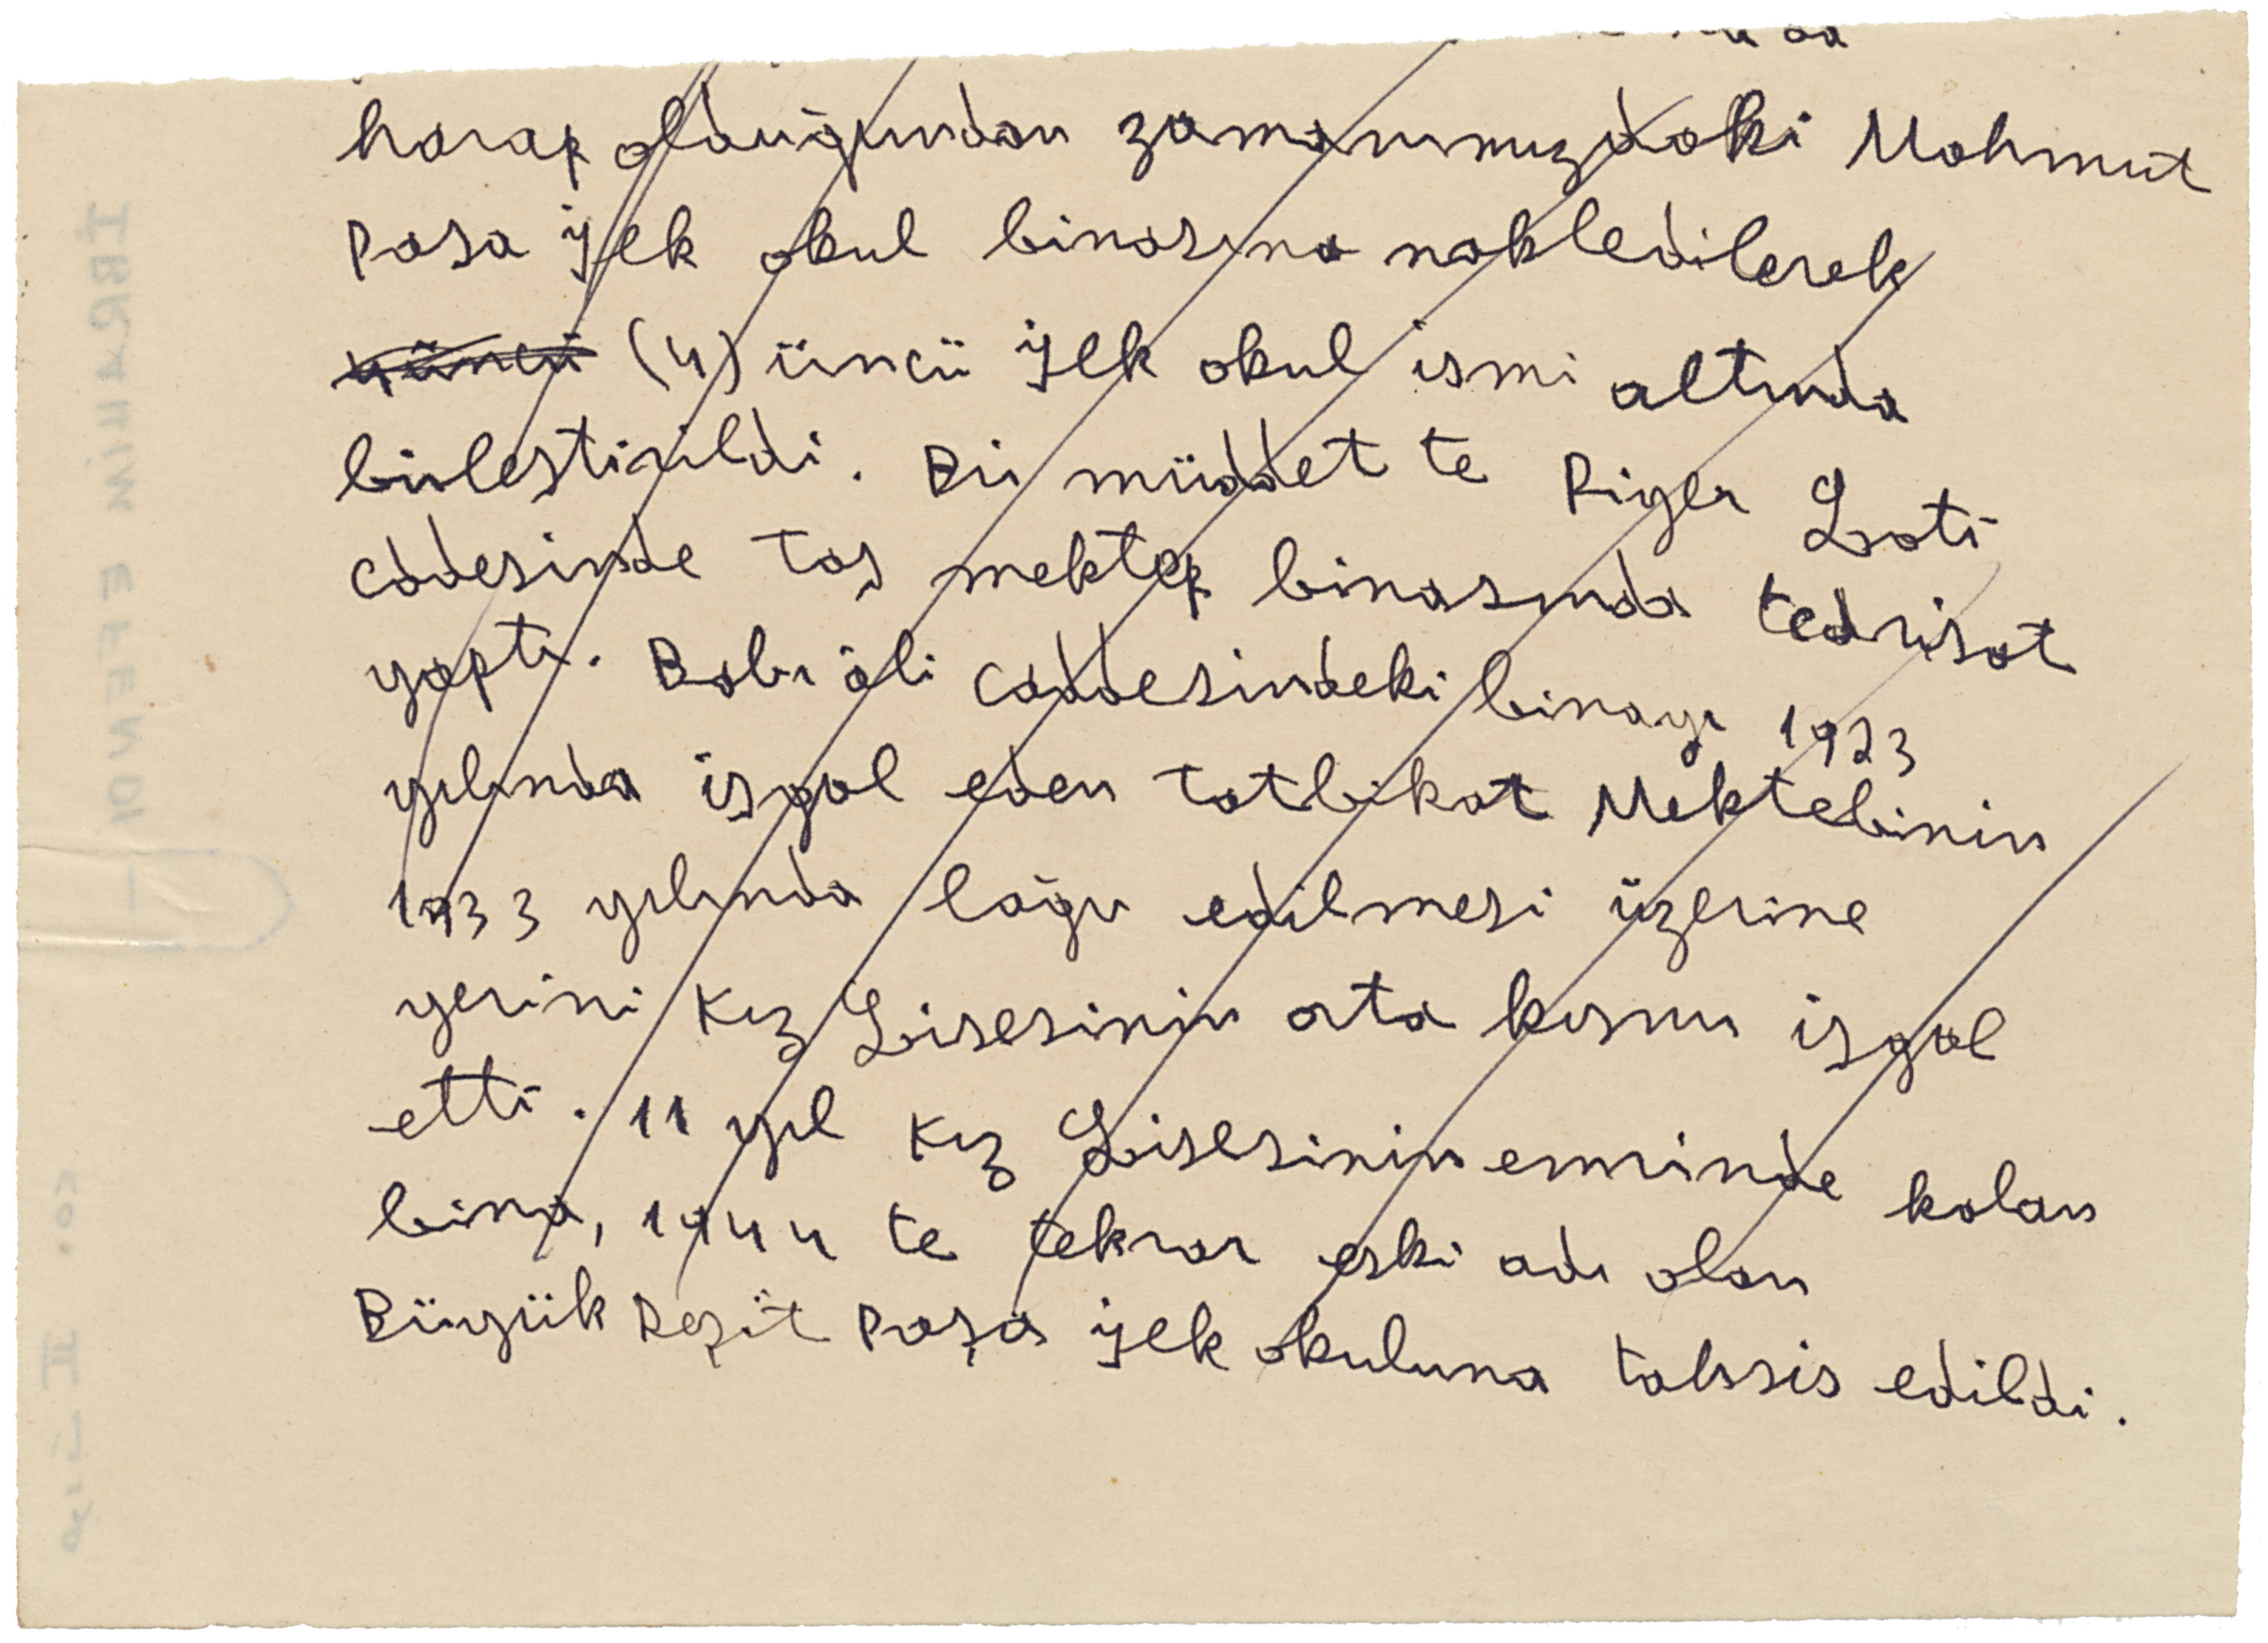 harap olduğundan zamanımızdaki Mahmut
Paşa İlk okul binasına nakledilerek
4üncü (4) üncü İlk okul ismi altında
birleştirildi. Bir müddet te Piyer Loti
caddesinde taş mektep binasında tedrisat
yaptı. Babı âli caddesindeki binayı 1923
yılında işgal eden tatbikat Mektebinin
1933 yılında lâğv edilmesi üzerine
yerini Kız Lisesinin orta kısmı işgal
etti. 11 yıl Kız Lisesinin emrinde kalan
bina, 1944 te tekrar eski adı olan
Büyük Reşit Paşa ilk okuluna tahsis edildi.
İBRAHİM EFFENDİ